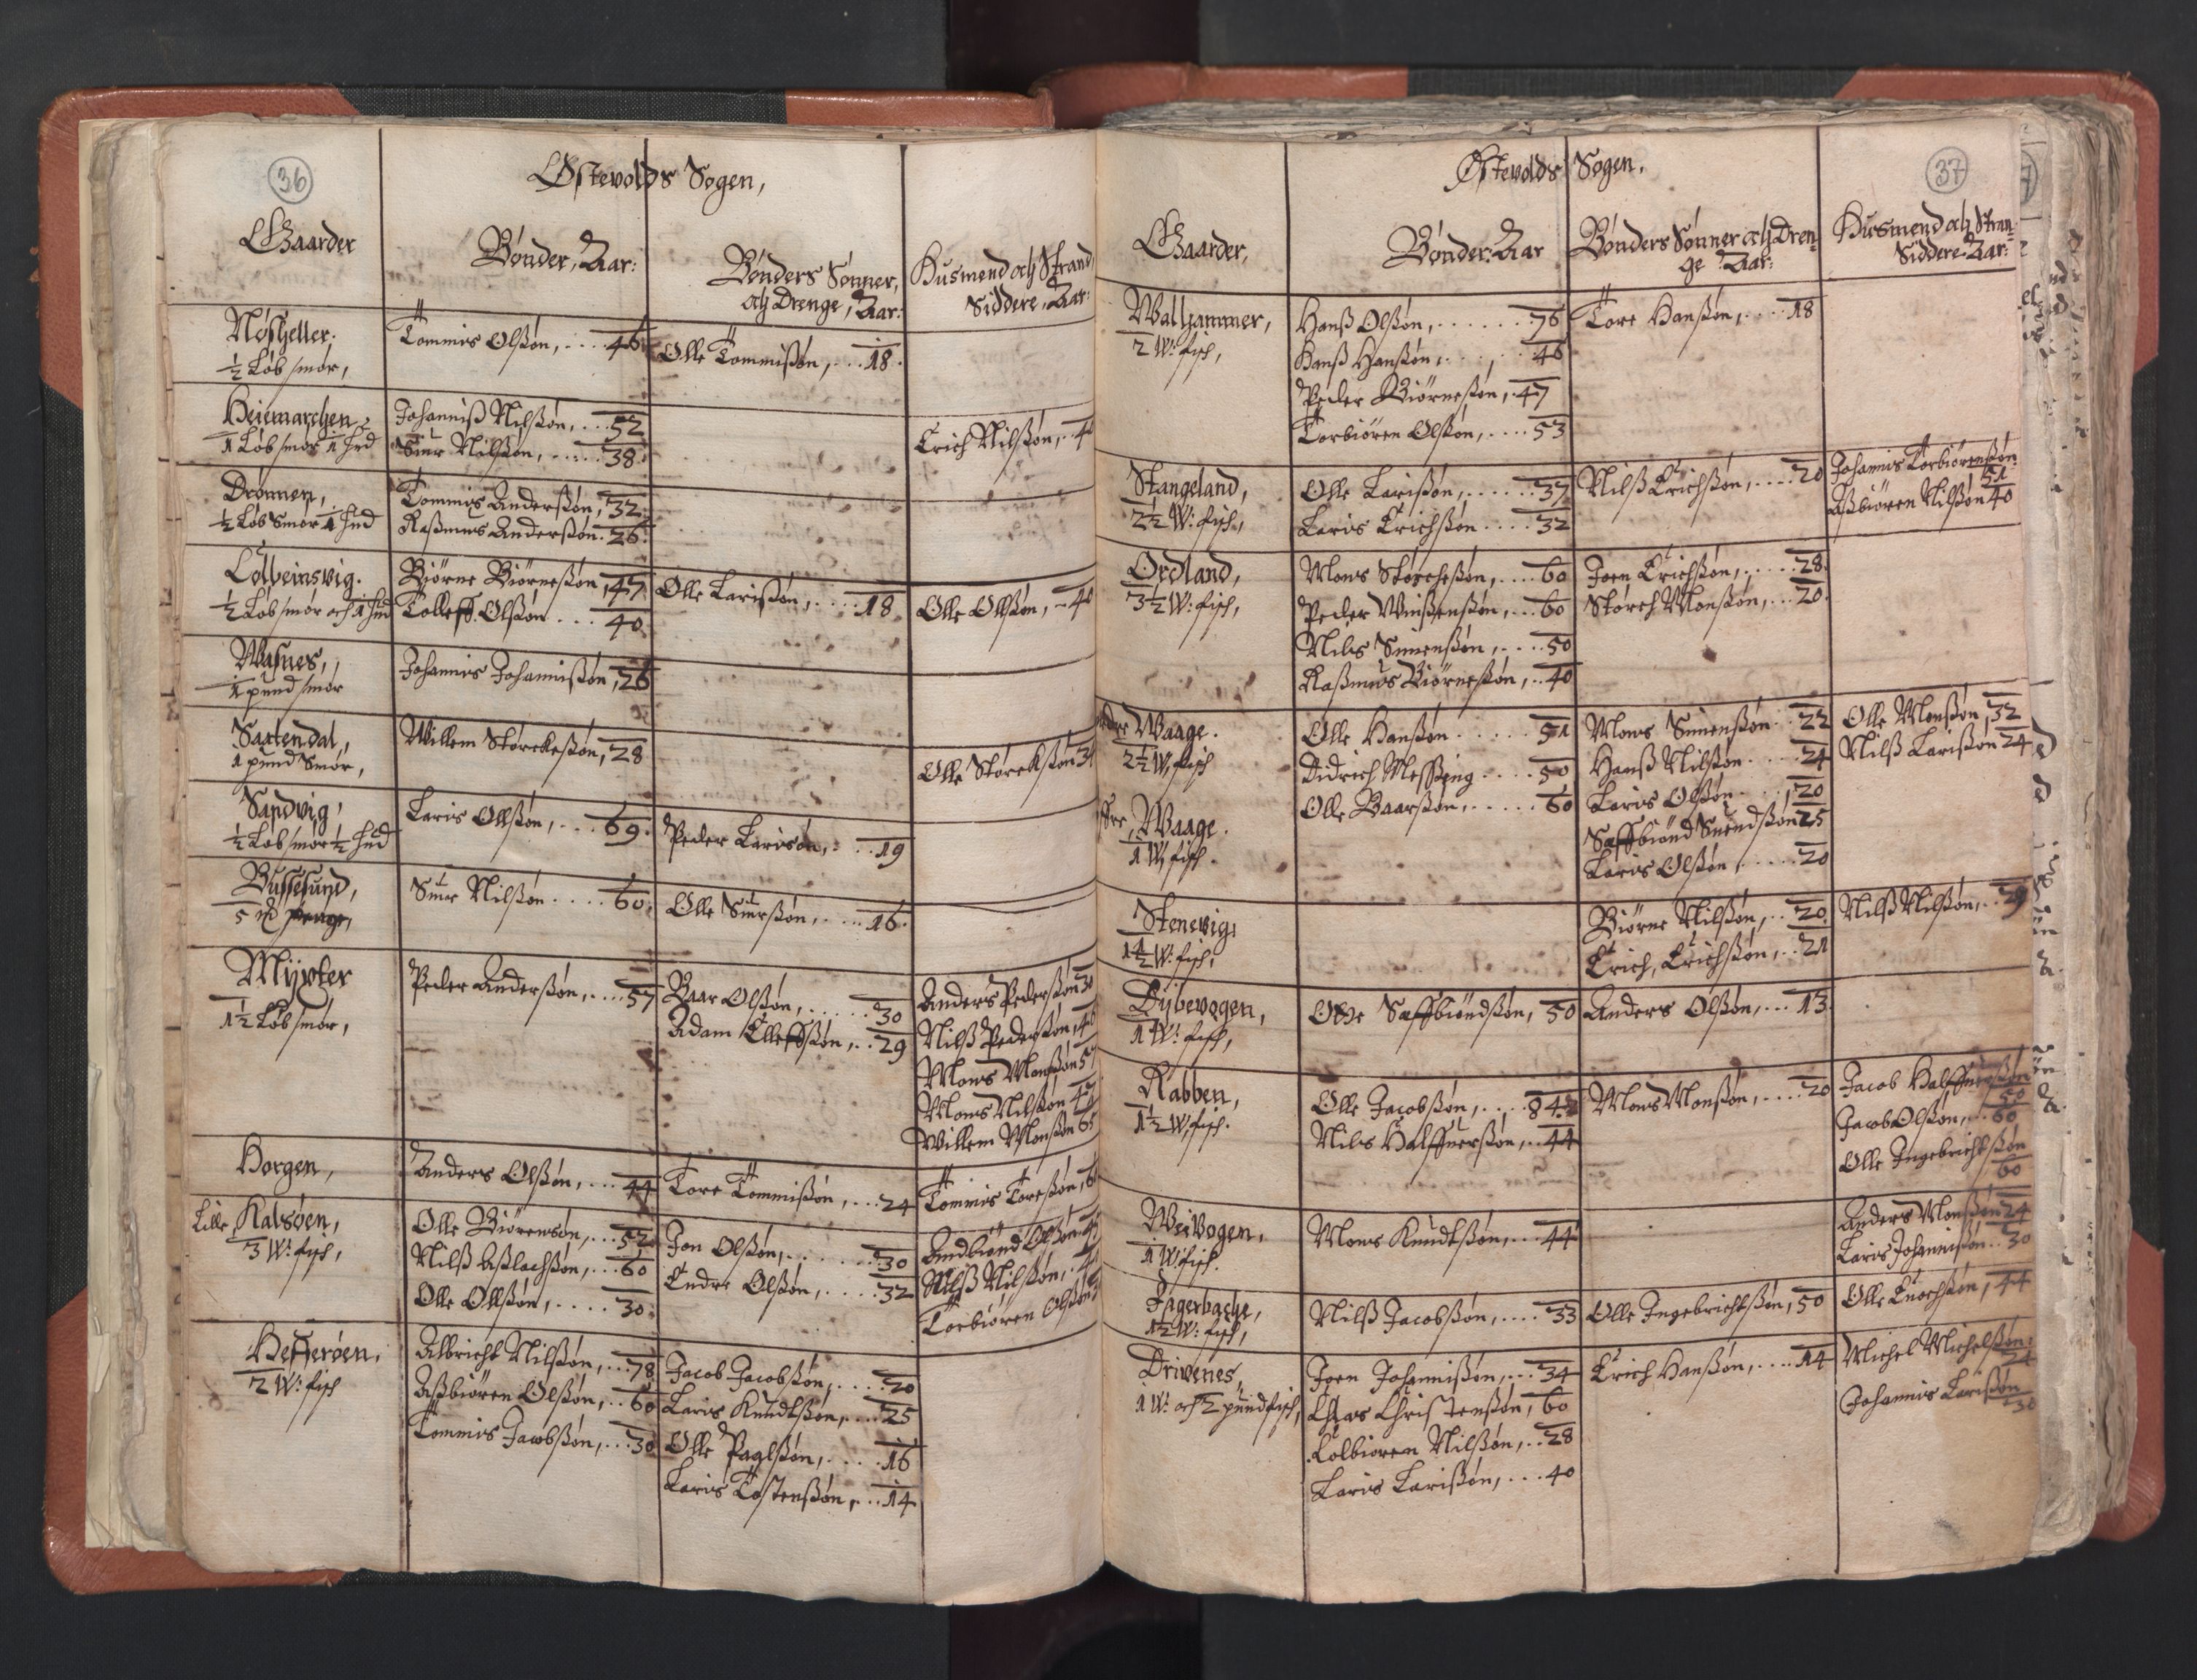 36
Østevolds Sogen,
Gaarder
Bønder, Aar:
Bønders Sønner,
och Drenge, Aar:
Husmend och Strand
Siddere, Aar:
Nøsheller.
½ Løb smør,
Tommis Olßøn, .... 46
Olle Tommißøn, ... 18.
Heiemarchen,
1 Løb smør 1 Hud
Johanniß Nilßøn, ... 52
Siur Nilßøn, ..... 38.
Erich Nilßøn,
Drønnen,
½ Løb Smør 1 hud
Tommis Anderßøn, 32.
Raßmus Anderßøn. 26.
Colbeinsvig.
½ Løb smør och 1 Hud
Biørne Biørneßøn, 47
Tolleff Olßøn ... 40.
Olle Larißøn, .... 18.
Olle Ollßøn,
Wasnes,
1 pund smør
Johannis Johannißøn, 26
Saxtendal,
1 pund Smør,
Willem Størckeßøn, 28
Olle Størckßøn
Sandvig,
½ Løb smør ½ Hud
Laris Ollßøn, ... 69.
Peder Larisøn, ... 19
Bussesund,
Siur Nilßøn .... 60.
Olle Siurßøn, .... 16.
Myxter
1½ Løb smør,
Peder Anderßøn, .... 57
Baar Olßøn, ...... 30
Adam Elleffßøn, .. 29
Anders Pederßøn 30
Nilß Pederßøn,
Mons Monßøn
Mons Nilßøn
Willem Monßøn 65
Horgen,
Anders Olßøn, .... 44
Tore Tommißøn, ... 24
Tommis Toreßøn,
Lille Kalsøen,
3 W: fisch,
Olle Biørensøn, ... 52.
Nilß Aßlachßøn, ... 60
Olle Ollßøn, .... 30.
Jon Olßøn, ...... 30
Endre Olßøn, ..... 32
Amdbiønd Olßøn
Nilß Nilßøn,
Torbiøren Olßøn
Hefterøen,
2 W: fisch
Albricht Nilßøn, ... 78
Aßbiøren Olßøn, .. 60
Tommis Jacobßøn, ... 30
Jacob Jacobßøn, .... 20
Laris Knudtßøn, .... 25
Olle Paglßøn, ..... 16
Laris Tostenßøn, .. 14
37
Østevolds Sogen.
Gaarder,
Bønder: Aar
Bønders Sønner och Dren-
ge Aar:
Husmend och Stran-
Siddere Aar:
Walhammer,
2 W: fisch,
Hanß Olßøn, ...... 76
Hanß Hanßøn, .... 46
Peder Biørneßøn, 47
Torbiøren Olßøn, .... 53
Tore Hanßøn, .... 18
Stangeland,
2½ W: fisch,
Olle Larißøn, ...... 37
Laris Erichßøn .... 32
Nilß Erichßøn, .... 20
Johannis Torbiørenßøn
51
Aßbiøren Nilßøn 40
Ordland,
3½ W: fisch,
Mons Størcheßøn, .... 60
Peder Winßenßøn, ... 60
Nils Simenßøn, .... 50
Raßmus Biørneßøn, .. 40
Joen Erichßøn, ..... 28.
Størch Monßøn, ... 20.
Waage.
2½ W, fisch
Olle Hanßøn ..... 51
Didrich Messing .... 50
Olle Baarßøn, ..... 60
Mons Simenßøn .. 22
Hanß Nilßøn ..... 24
Laris Olßøn .... 20
Saffbiønd Suendßøn 25
Laris Olßøn, ..... 20
Olle Monßøn, 32
Nilß Larißøn 24
Waage.
1 W, fisch.
Stenevig,
1½ W: fisch,
Biørne Nilßøn, .. 20
Erich, Erichßøn, .. 21
Nilß Nilßøn, .. 29
Dybevogen,
1 W: fisch,
Olle Saffbiøndßøn, 50
Anders Olßøn, ... 13.
Rabben,
1½ W, fisch.
Olle Jacobßøn, ....
Nils Halffuerßøn, .. 44
Mons Monßøn, .... 20
Jacob Halffuerßøn
50
Jacob Olßøn, .. 60
Olle Ingebrichtßøn
60
Weivogen,
1 W: fisch.
Mons Knudtßøn, ... 44
Anders Monßøn 24
Laris Johannißøn .. 30
Fagerbache,
1½ W: fisch,
Nilß Jacobßøn, .... 33
Olle Ingebrichtßøn, 50
Olle Enochßøn, 44
Drivenes,
1 W: och 2 pund fisch,
Joen Johannißøn, ... 34
Chlas Christenßøn, 60
Colbioren Nilßøn, .. 28
Laris Larißøn, ... 40
Erich Hanßøn, .... 14
Michel Michelßøn:
24
Johannis Larißøn
30